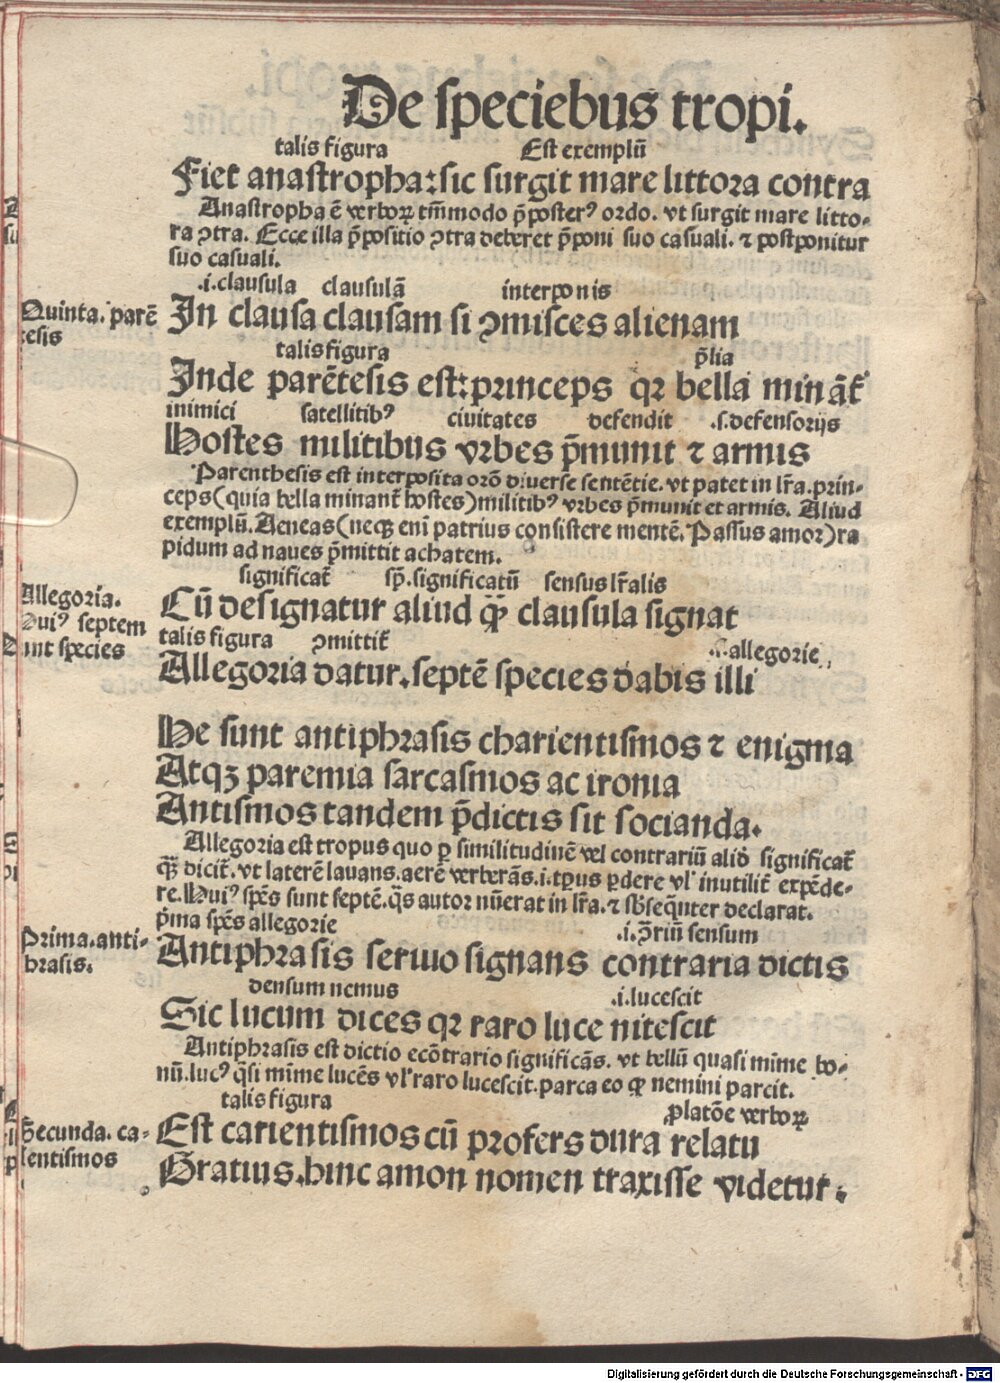 De speciebus tropi.
talis figura Est exemplū
Fiet anastropha: sic surgit mare littora contra
Anastropha ē verboꝝ tm̄modo p̄posterꝰ ordo. vt surgit mare litto-
ra ꝯtra. Ecce illa p̄positio ꝯtra deberet p̄poni suo casuali. ⁊ postponitur
suo casuali.
.i.clausula clausulā interponis
Quinta. parē
tesis
In clausa clausam si ꝯmisces alienam
talis figura p̄lia
Inde parētesis est: princeps qꝛ bella mināt̄
inimici satellitibꝰ ciuitates defendit .s.defensorijs
Hostes militibus vrbes p̄munit ⁊ armis
Parenthesis est interposita orō diuerse sentētie. vt patet in lr̄a. prin-
ceps (quia bella minant̄ hostes) militibꝰ vrbes p̄munit et armis. Aliud
exemplū. Aeneas (neqꝫ enī patrius consistere mentē. Passus amor) ra
pidum ad naues p̄mittit achatem.
significat̄ sp̄.significatū sensus lr̄alis
Allegoria.
Huiꝰ septem
sunt species
Cū designatur aliud qꝫ̄ clausula signat
talis figura ꝯmittit̄ .s.allegorie
Allegoria datur. septē species dabis illi
He sunt antiphrasis charientismos ⁊ enigma
Atqꝫ paremia sarcasmos ac ironia
Antismos tandem p̄dictis sit socianda.
Allegoria est tropus quo ꝑ similitudinē vel contrariū aliđ significat̄
qꝫ̄ dicit̄. vt laterē lauans. aerē verberās. i. tp̄us ꝑdere vl' inutilit̄ expēde-
re. Huiꝰ spēs sunt septē. q̄s autor nūerat in lr̄a. ⁊ sb̄seq̄nter declarat.
p̄ma spēs allegorie .i.ꝯ̄riū sensum
Prima. anti-
phrasis.
Antiphrasis sermo signans contraria dictis
densum nemus .i.lucescit
Sic lucum dices qꝛ raro luce nitescit
Antiphrasis est dictio ecōtrario significās. vt bellū quasi mīme bo-
nū. lucꝰ q̄si mīme lucēs vl' raro lucescit. parca eo ꝙ nemini parcit.
talis figura ꝓlatōe verboꝝ
Secunda. ca-
rientismos
Est carientismos cū profers dura relatu
Gratius. hinc amon nomen traxisse videtur.
Digitalisierung gefördert durch die Deutsche Forschungsgemeinschaft - DFG